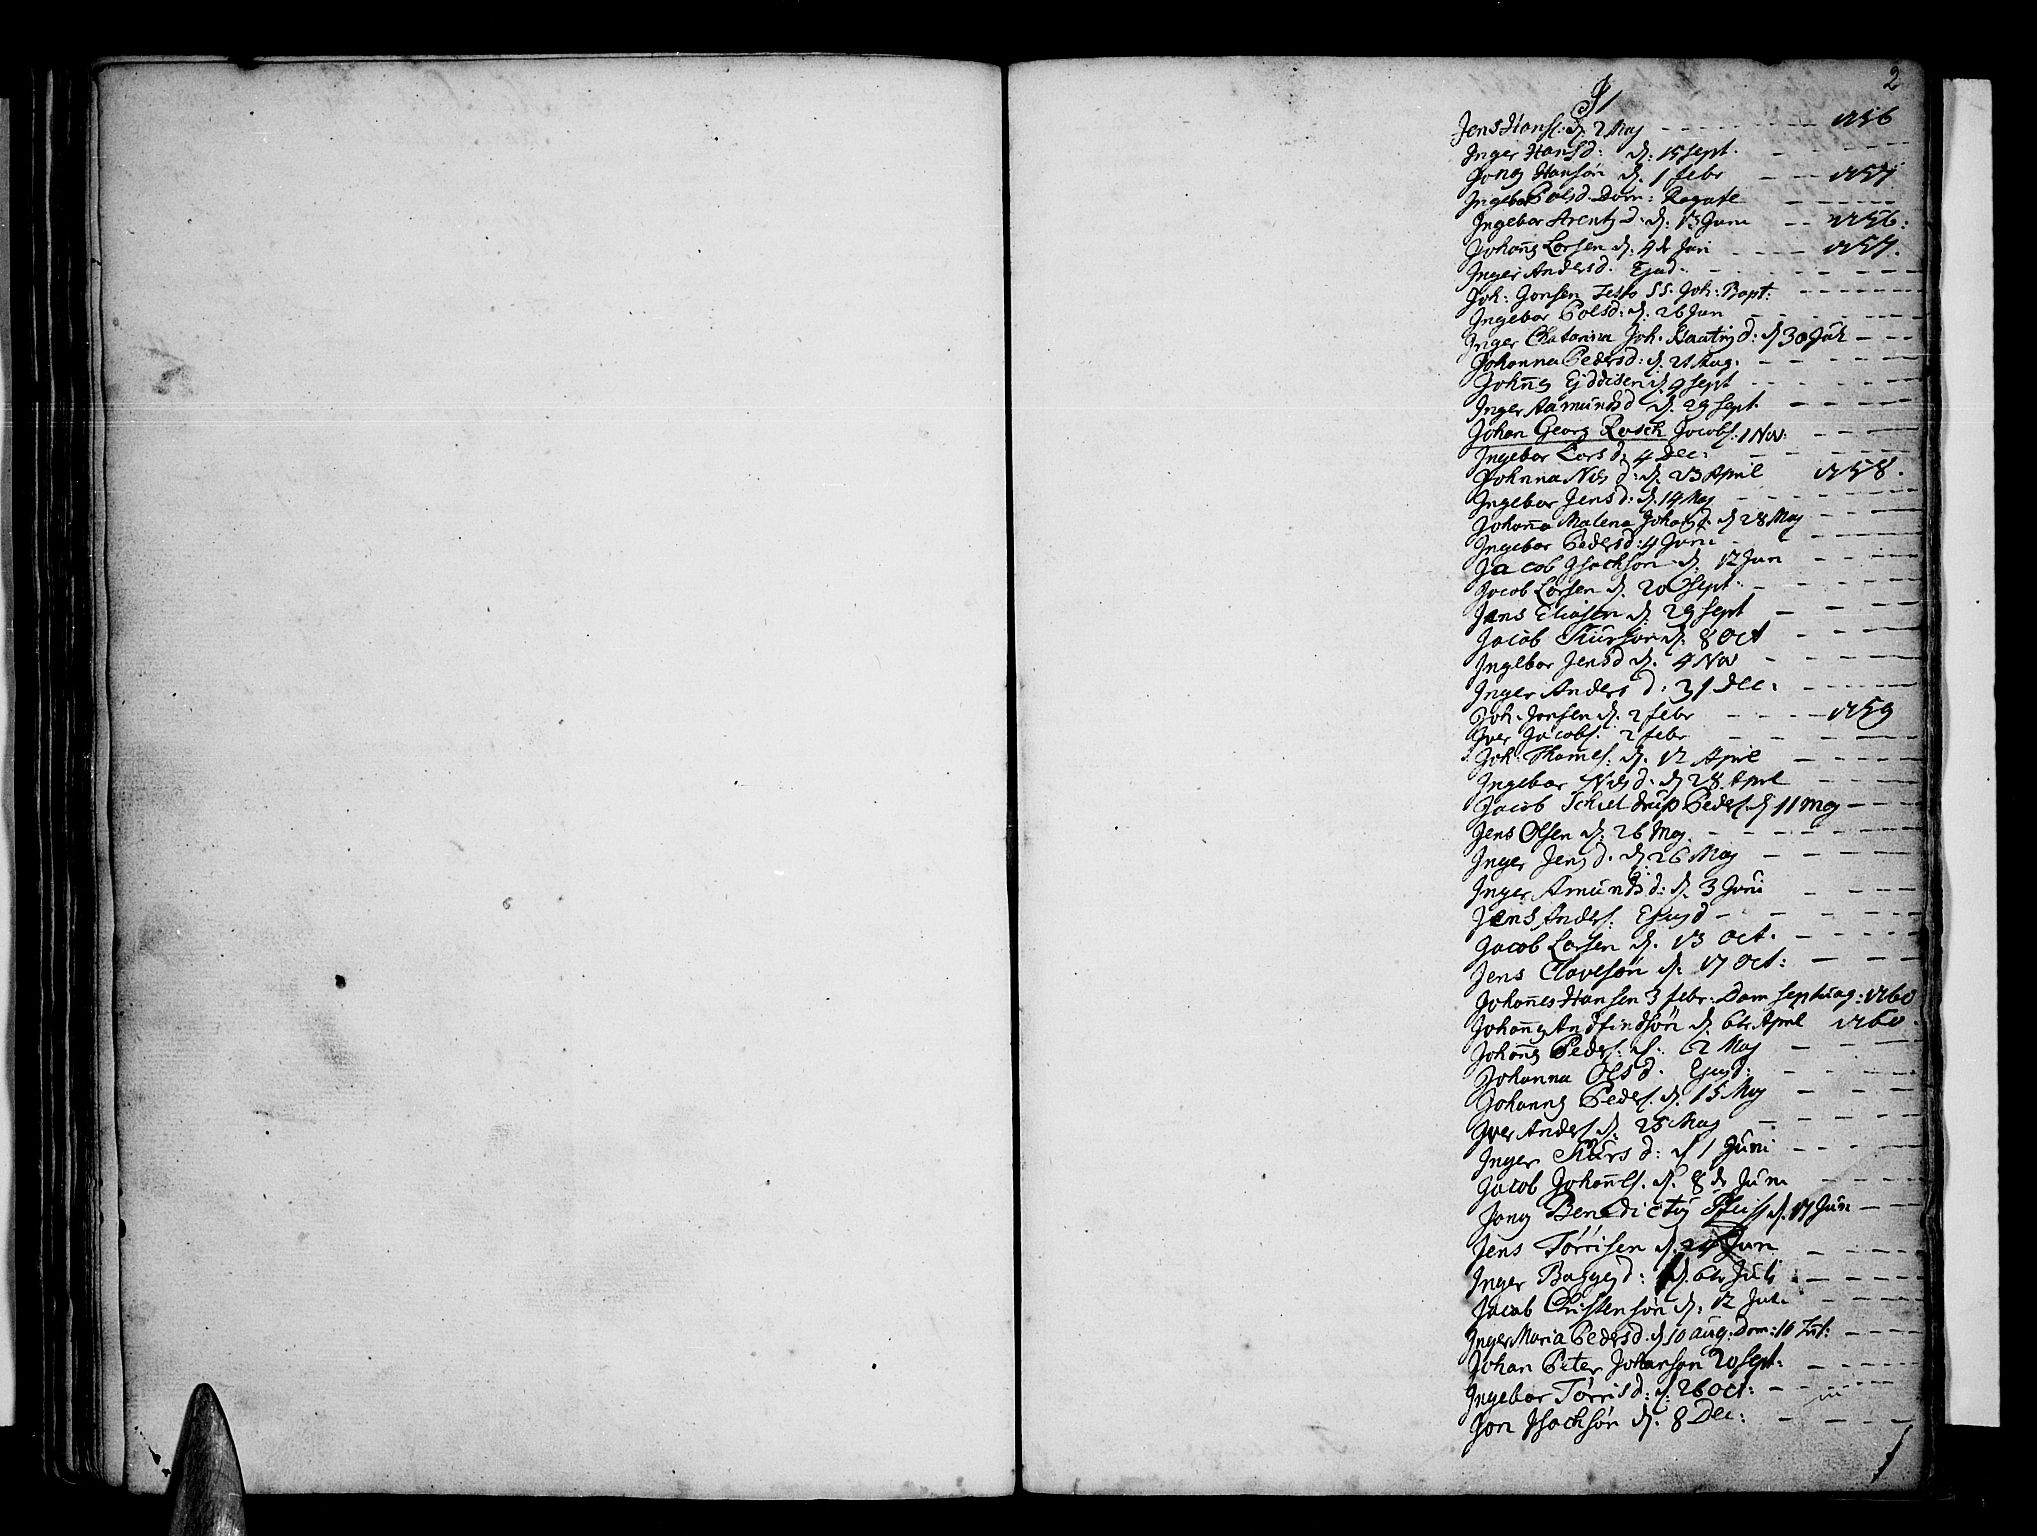 2
J
Jens Hansl: d. 2 Maj - - - - 1756
Inger Hansd: d: 15 Sept. - - - -
Jong Hansön d. 1 febr - - 1757
Ingebor Polsd. Dom: Rogate - - - -
Ingebor Arentz d: d. 13 Juni - - 1756:
Johañs Larsen d. 4 de Jan - - - 1757.
Inger Andersd. Ejusd. - - - -
Joh: Jonsen Festo SS. Joh: Bapt: - - - -
Ingebor Polsd: d. 26 Jun - - - -
Inger Chatarina Joh. d: d 30 Juli - - -
Johanna Pedersd: d. 21 Aug: - - - -
Johñs Ejddisen d. 9 Sept - - - -
Inger Aamundsd d. 29 Sept. - - - -
Johan Georg Rosch Jacobs: 1 Nov: - - - -
Ingebor Larsd. 4 Dec: - - - -
Johnna Nils d: d. 23 April 1758.
Ingebor Jensd: d. 14 Maj - - - -
Johaña Malena Johansd. d 28 Maj - - - -
Ingebor Pedersd: 4 Juni - - - -
Jacob Isachsön d. 12 Jun - - - -
Jacob Larsen d. 20 Sept. - - - -
Jens Eliasen d. 29 Sept - - - -
Jacob Siursön d. 8 Oct - - - -
Ingebor Jensd d. 4 Nov - - - -
Inger Anders d: 31 Dec: - - - -
Joh. Jonsen d. 2 febr - - - 1759
Iver Jacobs. 2 febr - - - -
Joh: Thomes. d. 12 April - - - -
Ingebor Nilsd. d 28 April - - - -
Jacob Schieldrup Peders. d 11 Maj - - -
Jens Olsen d. 26 Maj. - - - -
Inger Jensd. d. 26 Maj - - - -
Inger Amundsd: d. 3 Juni - - - -
Jens Anders. Ejusd - - - -
Jacob Larsen d. 13 Oct. - - - -
Jens Clavesön d. 17 Oct: - - - -
Johañes Hansen 3 febr: Dom Septuag: 1760
Johañs Andfindsön d. 6te April 1760.
Johañs Peders. d. 12 Maj - - - -
Johanna Olsd. Ejusd: - - - -
Johanns Peders. d. 15 Maj - - - -
Iver Anders d. 25 Maj - - - -
Inger Siurs d: d 1 Juni - - - -
Jacob Johañes. d. 8 de Juni - - - -
Jens Benedictus d. 17 Jun - - -
Jens Törrisen d. 24 Jun - - - -
Inger Baggesd: d. 6te Juli - - - -
Jacob Christensön d. 12 Juli - - - -
Inger Maria Pedersd. d 10 aug: Dom: 10 Trit: - - - -
Johan Peter Johansön 20 Sept: - - - -
Ingebor Törrisd: d: 26 Oct: - - - -
Jon Isachsön d. 8 Dec: - - - -